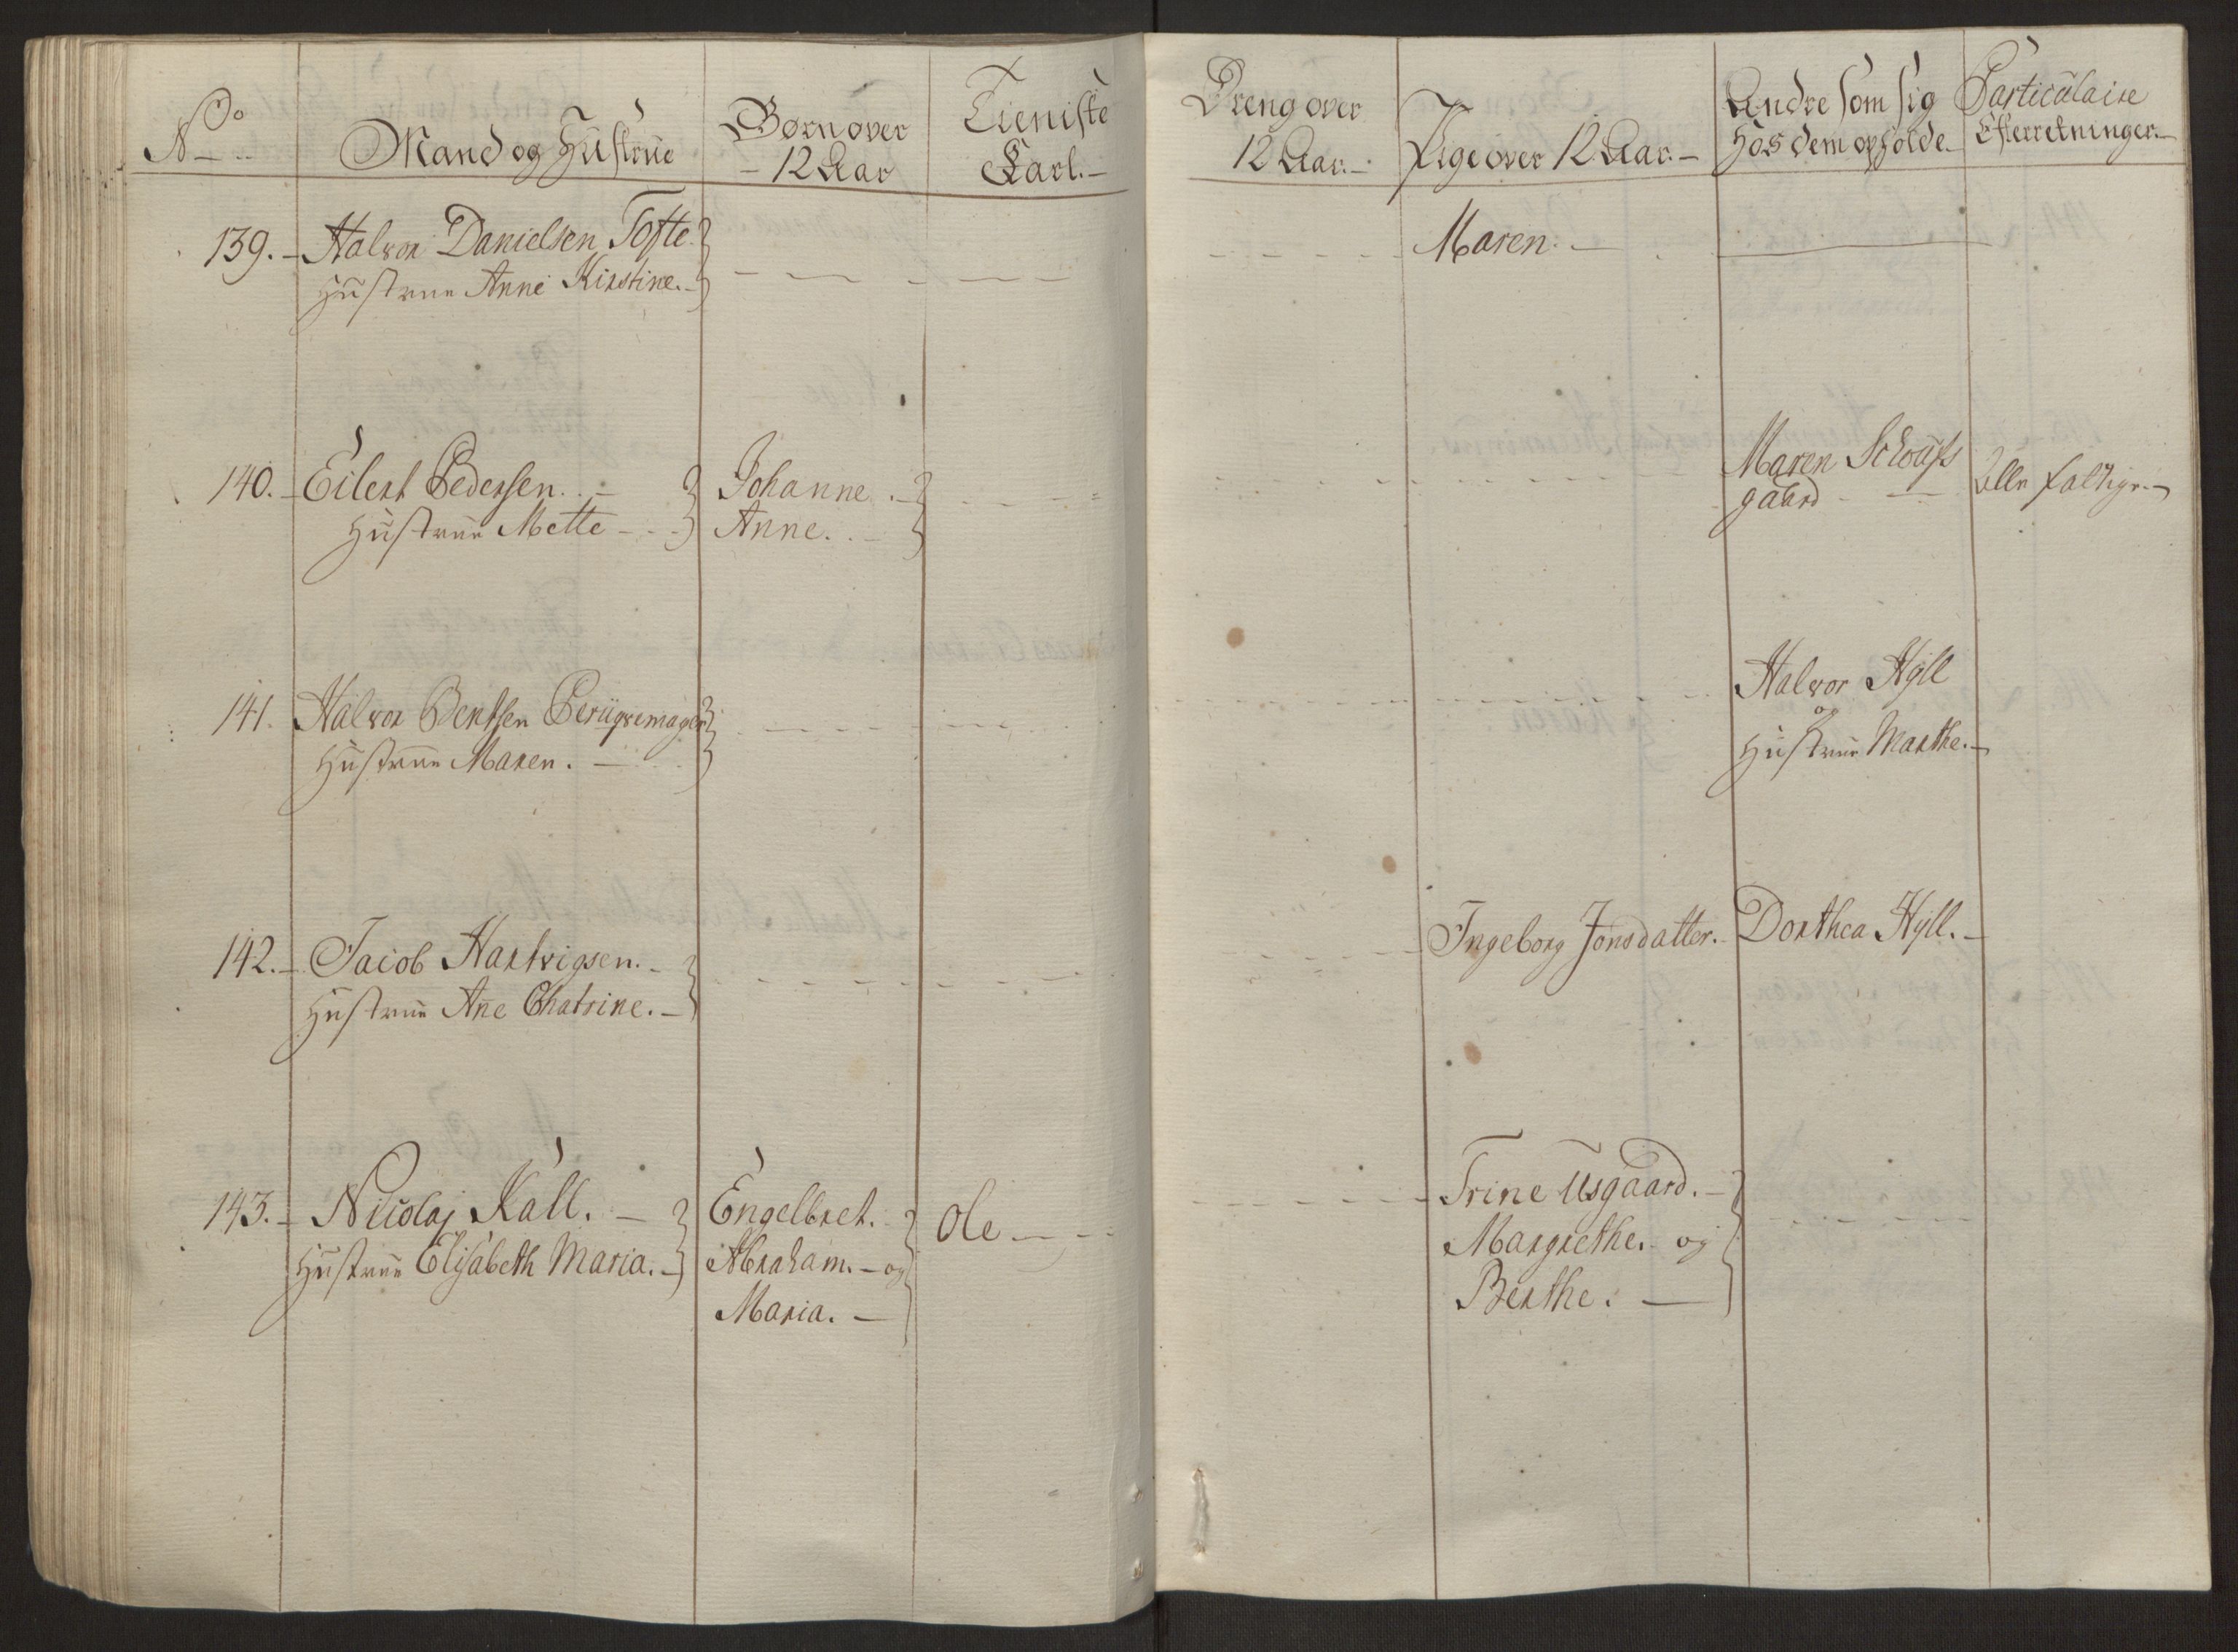 No
Mand og Hüstrüe
Børn over
12 Aar
Tieniste
Karl.
Dreng over
12 Aar.
Pige over 12 Aar.
Andre som sig
Hos dem opholde
Particülaire
Efterretninger.
139. Halvor Danielsen Tofte.
Hüstrüe Anne Kirstine.
Maren.
140. Eilert Pedersen.
Hüstrüe Mette
Johanne.
Anne.
Maren
gaard
Alle fattige.
141. Halvor Bentsen Perüqvemager
Hüstrüe Maren.
Halvor Hÿll
og
Hüstrüe Marthe.
142. Jacob Hartvigsen.
Hüstrüe Añe Chatrine.
Ingeborg Jonsdatter.
Dorthea Hÿll.
143. Nicolaj Kall.
Hüstrüe Elisabeth Maria.
Engelbret.
Abraham. og
Maria.
Ole
Trine Usgaard.
Margrethe. og
Berthe.